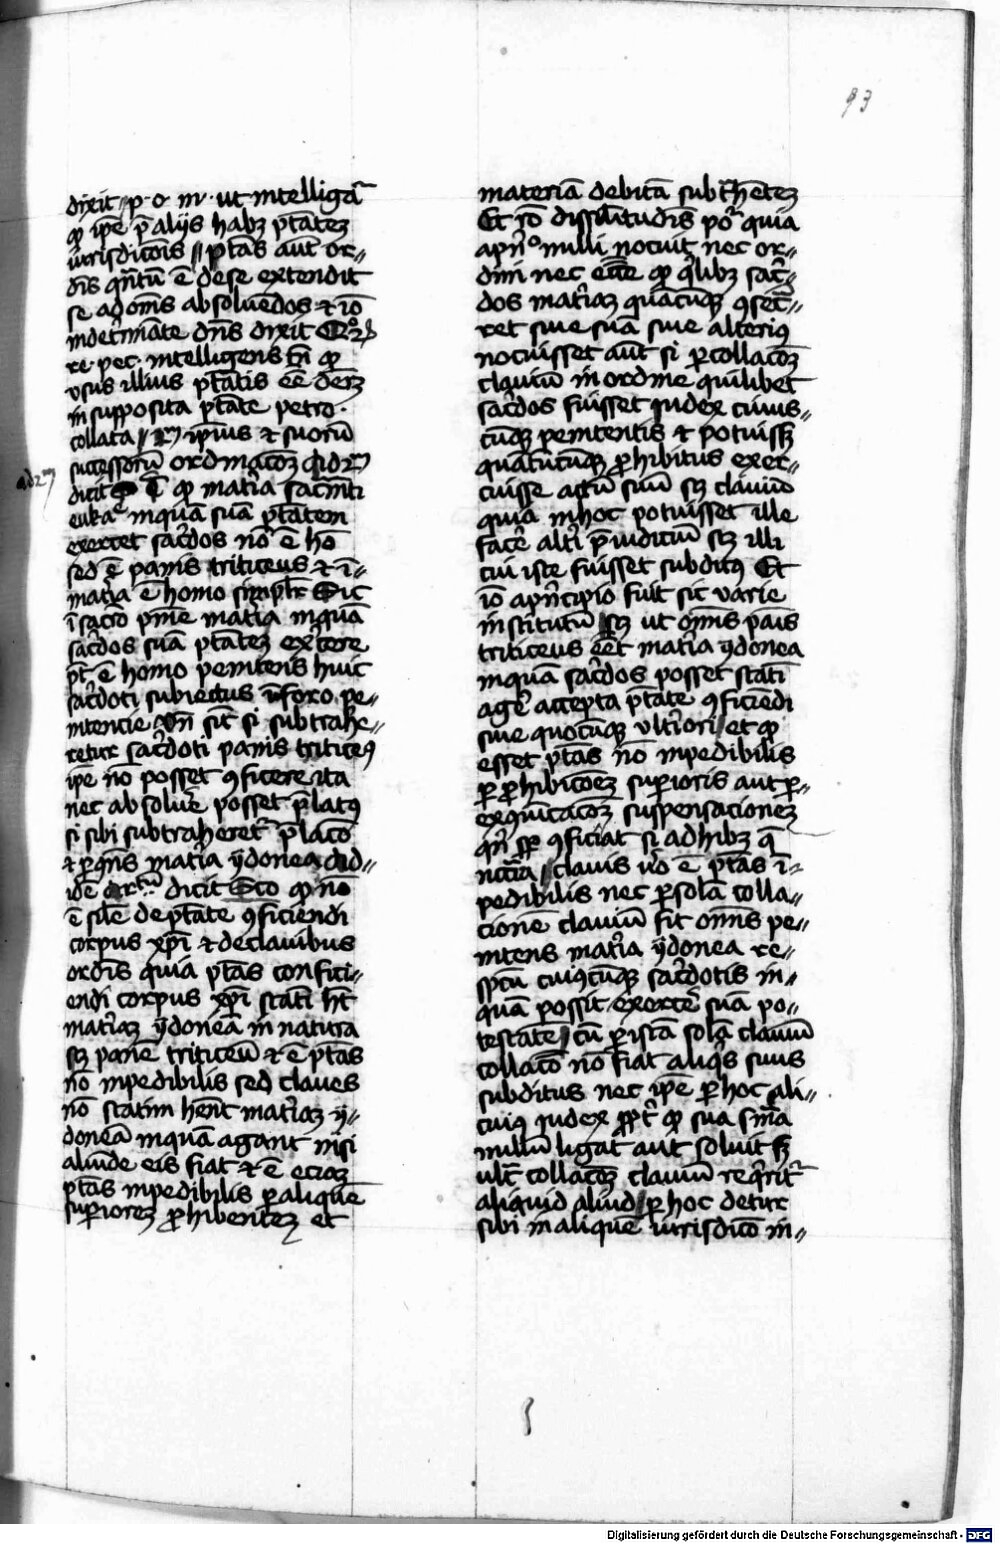 93
dixit p. o. m. ut intelligat̄
qđ ip̄e p̄ aliis habz̄ p̄tatez
iurisdict̄ois // p̄tas aut̄ or-
dīs q̄ntū ē de se extendit
se ad om̄s absoluēdos et iō
indet̄minate dn̄s dixit
re. pec. intelligens tn̄ qđ
usus illius p̄tatis ēē deƀz
in supposita p̄tate petro
collata // ip̄ius et suorū
successorū ordinac̄oez Ad 2m
ad 2m
dicit ē qđ mat̄ia sacr̄nti
euka inquā suā p̄tatem
exercet sac̄dos nō ē hō
sed ē panis triticeus et ī-
mat̄ia ē homo simpl̄r Sic
ī sacrō pn̄īe mat̄ia inquā
sac̄dos suā p̄tatez ex̄cere
pt̄ ē homo penitens huic
sac̄doti subiectus ī foro pe-
nitencie Vn̄ sic̄ si subtrahe-
retur sac̄doti panis triticeꝯ
ip̄e nō posset ꝯficere ita
nec absolūe posset p̄latꝯ
si sibi subtraheret̄ p̄lac̄o
et p̄ ꝯn̄s mat̄ia ydonea Ad-
idē dicit Sco qđ nō
ē sil̄e de p̄tate ꝯficiendi
corpus xp̄i et de clauibus
ordīs quia p̄tas confici-
endi corpus xp̄i statī hт̄
mat̄iaz ydoneā in natura
sz̄ panē triticeū et ē p̄tas
nō inpedibilis sed claues
nō statim hēnt mat̄iaz y-
doneā inquā agant nisi
aliūde eis fiat et ē eciaz
p̄tas inpedibilis p̄ aliquē
sup̄iorez ꝓhibentez et
materiā debitā subt̄hētez
Et iō dissil̄itudīs pō quia
apn̄o nulli nocuit nec or-
dini nec ecc̄e qđ q̄libz sac̄-
dos mat̄iaz quācūqꝫ ꝯsec̄-
ret siue suā siue alteriꝯ
nocuisset aut̄ si p̄ collac̄oez
clauiū in ordine quilibet
sac̄dos fuisset iudex cuius-
cūqꝫ penitentis et potuissz
quātūcūqꝫ ꝓhibitus exer-
cuisse actū suū sz̄ clauiū
quia in hoc potuisset ille
fac̄e alt̄i p̄iudiciū sz̄ illi
cui iste fuisset subditꝯ Et
iō apn̄cipio fuit sic varie
institutū sz̄ ut om̄is pāis
triticeus ēēt mat̄ia ydonea
inquā sac̄dos posset statī
aḡe accepta p̄tate ꝯficiēdi
siue quocūqꝫ ult̄iori et qđ
esset p̄tas nō inpedibilis
p̄ ꝓhibic̄oez sup̄ioris aut p̄-
exc̄ōicac̄oez suspensacionez
qn̄ sp̄ ꝯficiat si adhibz q̄
nc̄c̄ia // clauis v̄o ē p̄tas ī-
pedibilis nec p̄ solā colla-
cionē clauiū fit om̄is pe-
nitens mat̄ia ydonea re-
sp̄ctu cuiꝯcūqꝫ sac̄dotis in-
quā possit exerc̄e suā po-
testatē // cū p̄ istā solā clauiū
collac̄o nō fiat aliq̄s suus
subditus nec ip̄e p̄ hoc ali-
cuiꝯ iudex ꝓpt̄ qđ sua sn̄ia
nullū ligat aut soluit sz̄
ult̄ collac̄oez clauiū req̄rit̄
aliquid aliud p̄ hoc detur
sibi in aliquē iurisdic̄o in-
Digitalisierung gefördert durch die Deutsche Forschungsgemeinschaft - DFG